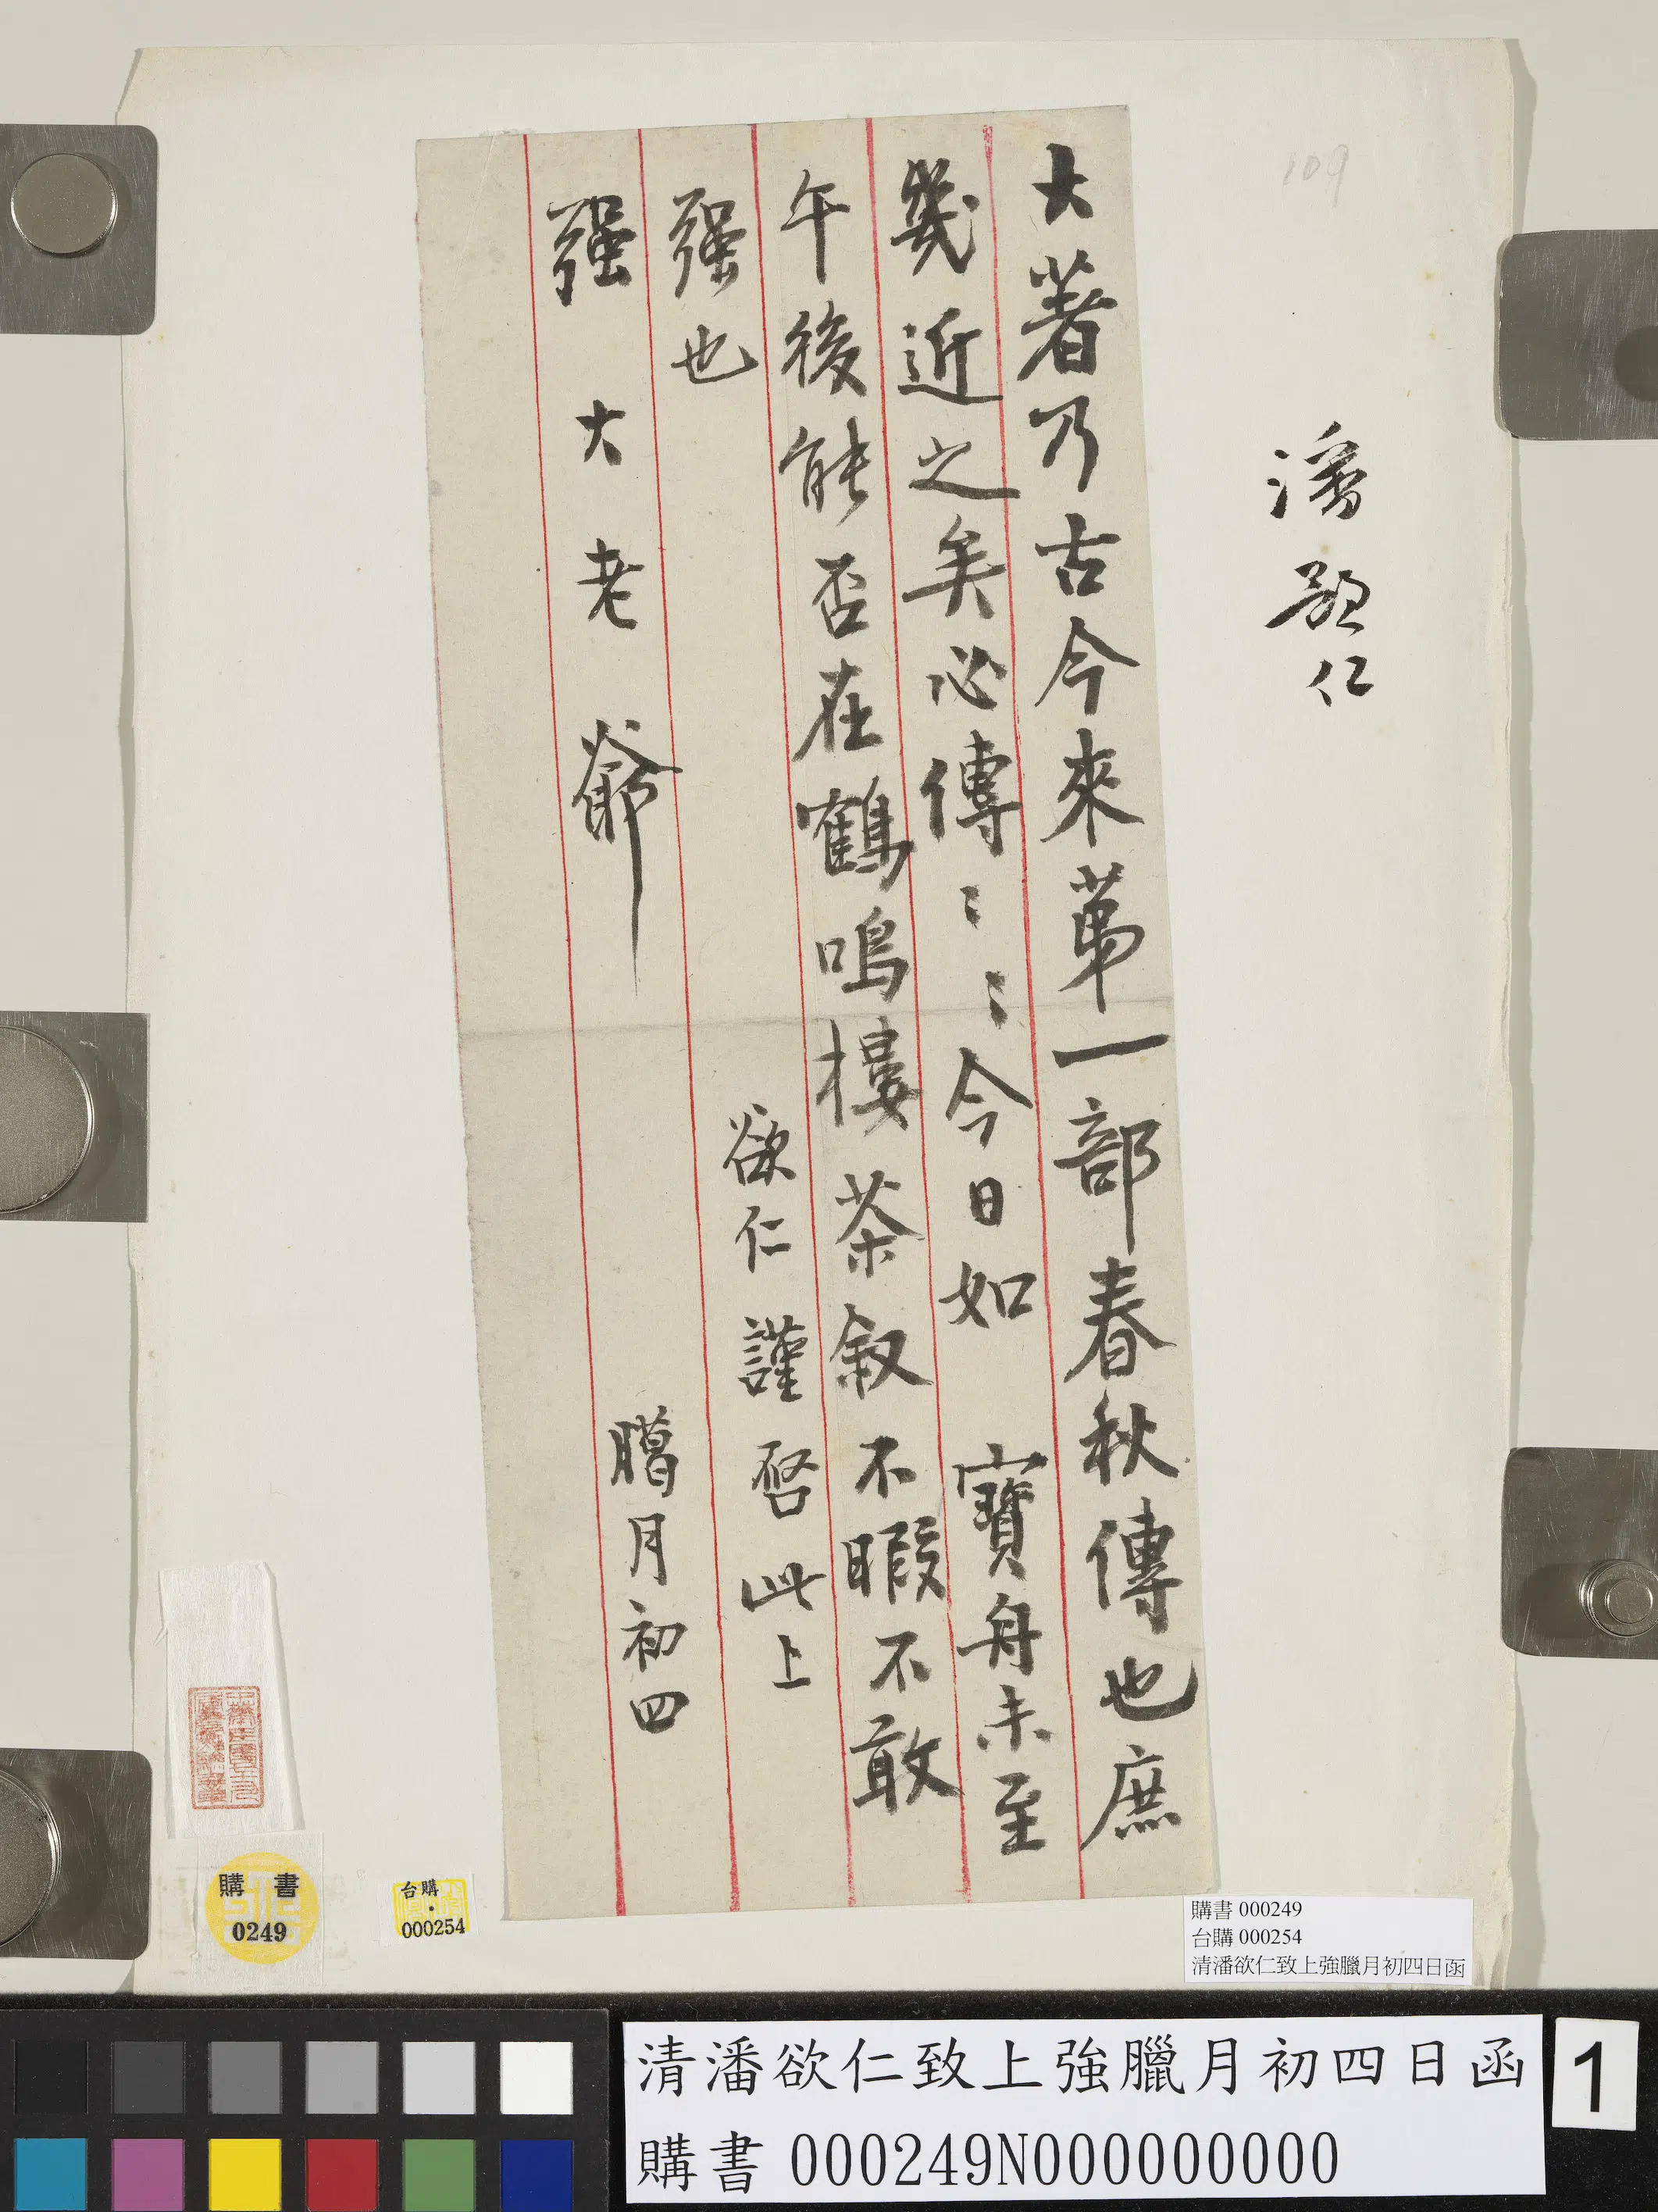 109
潘欲仁
大著乃古今來第一部春秋傳也庶
幾近之矣必傳〻〻今日如 寶舟未至
午後能否在鶴鳴樓茶叙不暇不敢
强也
欲仁謹啓此上
强大老爺
臈月初四
購書
0249
台購
000254
購書 000249
台購 000254
清潘欲仁致上強臘月初四日函
清潘欲仁致上強臘月初四日函
購書 000249N000000000
1